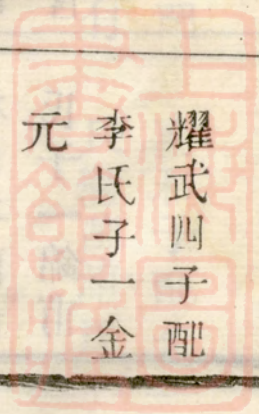 耀武四子配
李氏子一金
元